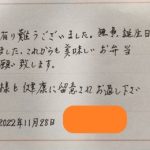 有り難うございました。無事誕生日
ました、これからも美味しいお弁当
願い致します。
様も健康に留意されお過し下さい
2022年11月28日